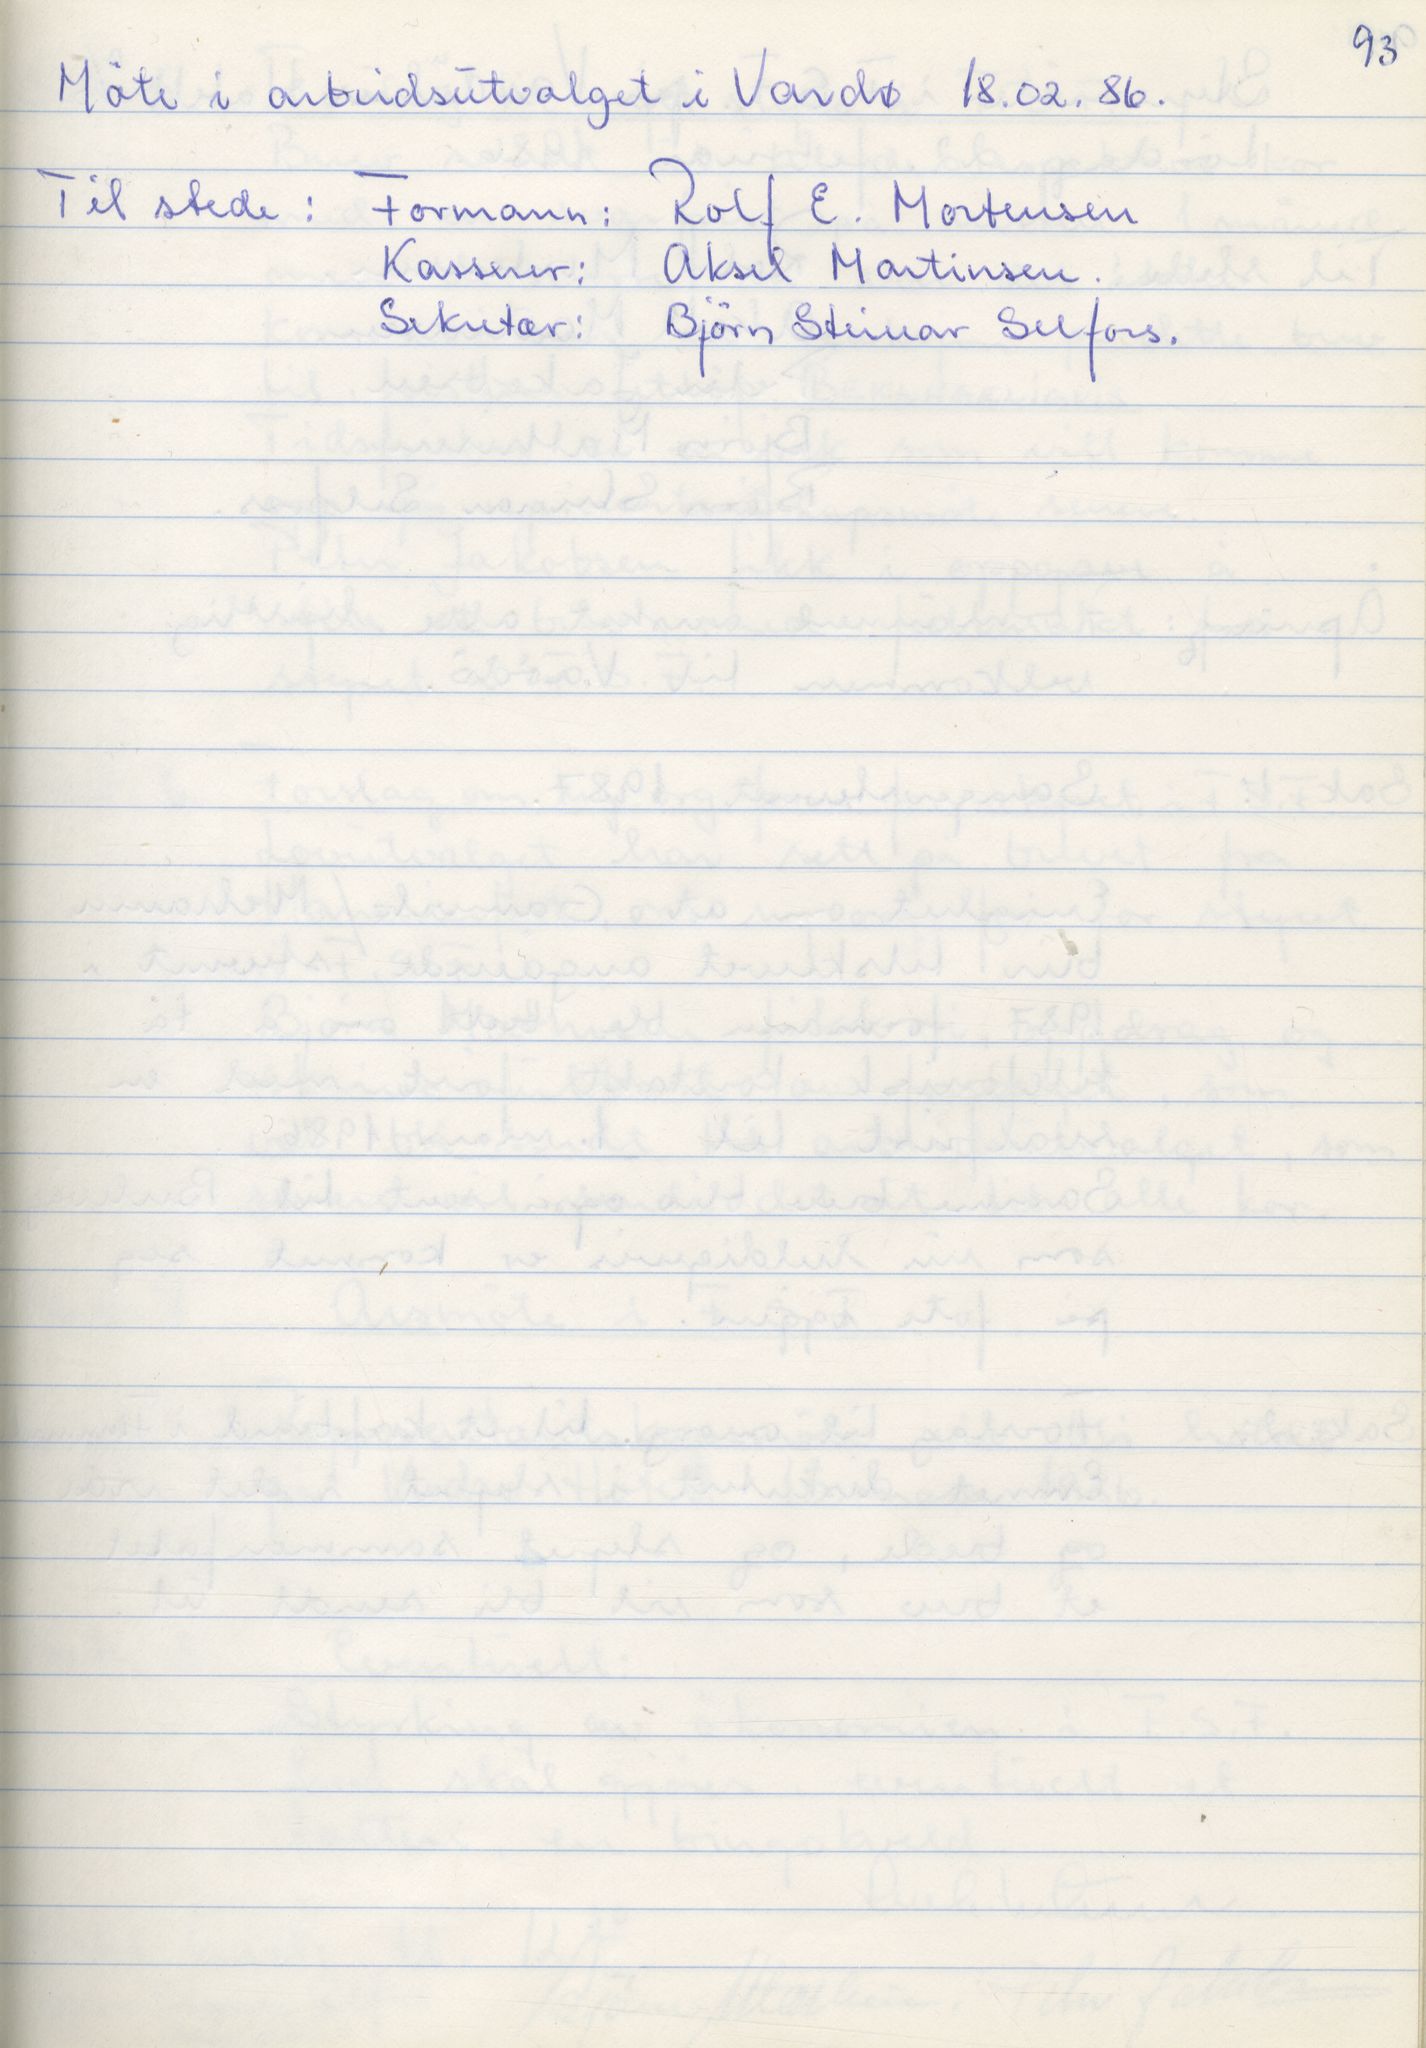 93
Möte i arbeidsutvalget i Vardø 18.02.86.
Til stede: Formann: Rolf E. Mortensen
Kasserer: Aksel Martinsen.
Sekretær: Björn Steinar Selfors.